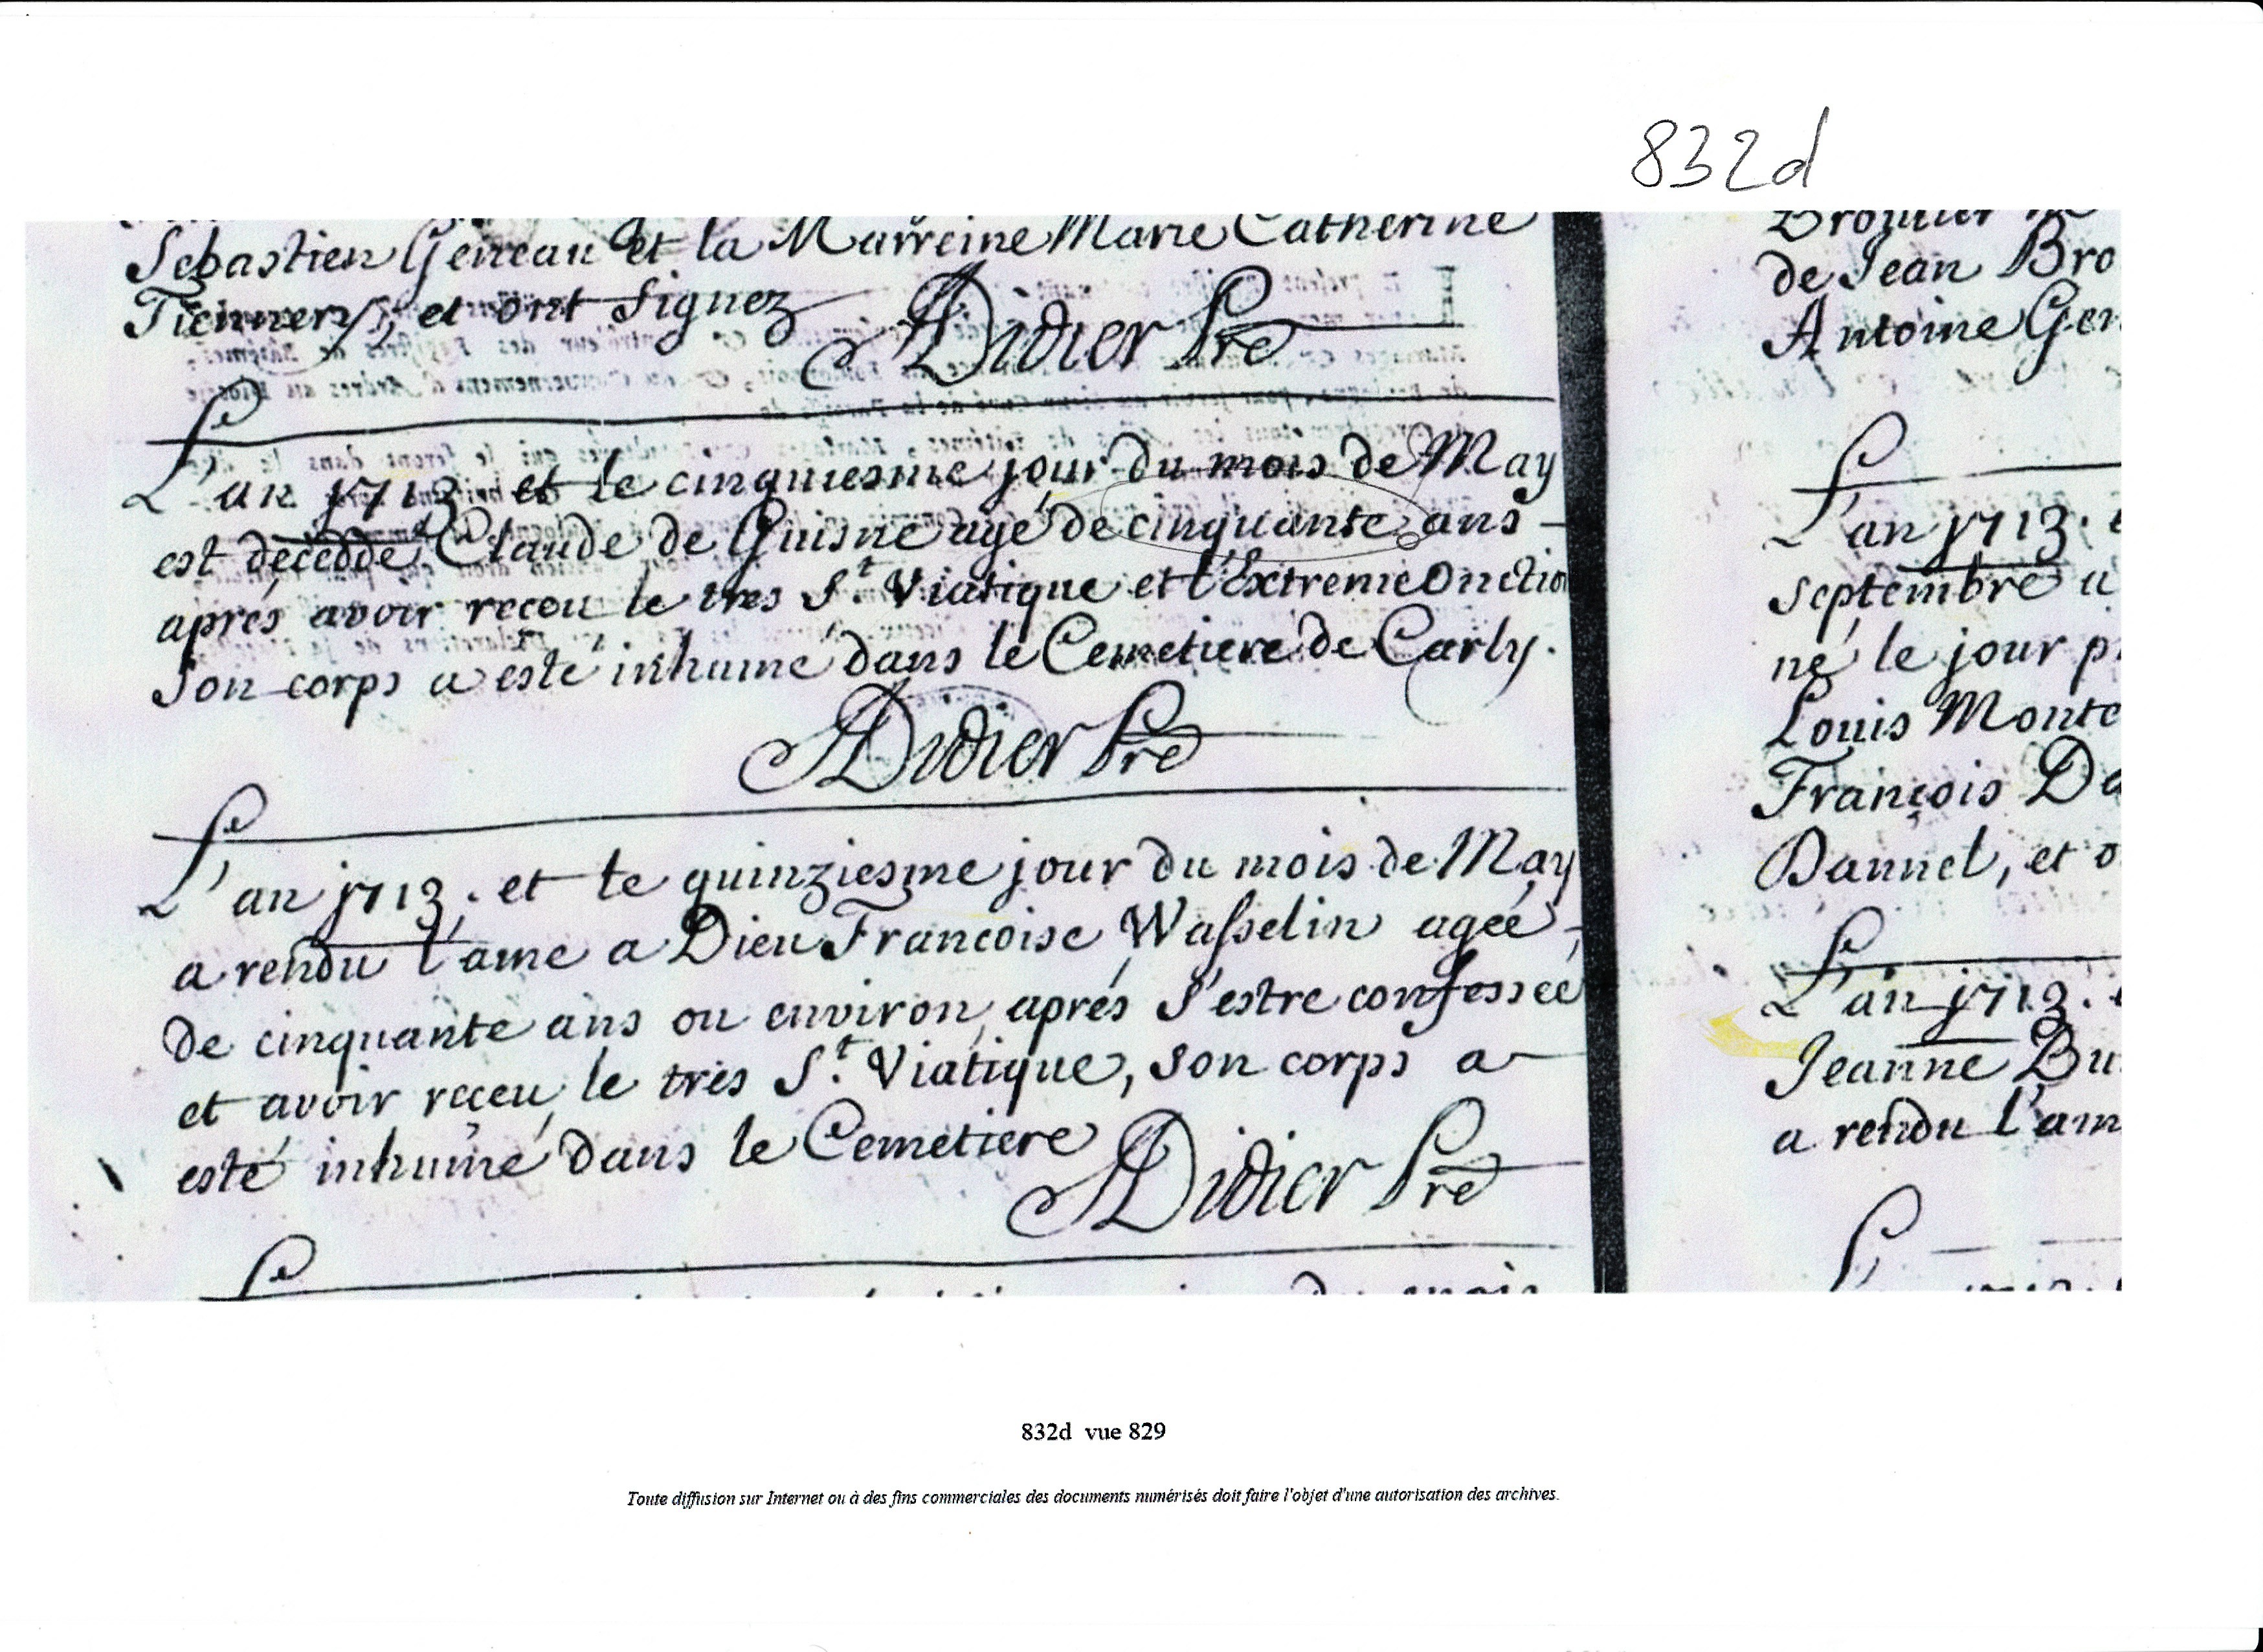 832d
Sebastien Geneau et la Marreine Marie Catherine
et ont signez
ADidier Pre
L'an 1713 et le cinquiesme jour du mois de May
est decedde Claude de Guisne agé de cinquante ans
aprés avoir reçeu le tres St. Viatique et l'Extreme Onctio
son corps a esté inhumé dans le Cemetiere de Carly.
ADidier Pre
L'an 1713. et le quinziesme jour du mois de May
a rendu l'ame a Dieu Francoise Wasselin agée
de cinquante ans ou environ, aprés s'estre confessée
et avoir reçeu le tres St. Viatique, son corps a
esté inhumé dans le Cemetiere
ADidier Pre
du mois
de Jean Bro
Antoine Gen
L'an 1713.
septembre a
né le jour p
Louis Monte
François Da
Dannel, et o
L'an 1713.
Jeanne Bu
a rendu l'am
832d vue 829
Toute diffusion sur Internet ou à des fins commerciales des documents numérisés doit faire l'objet d'une autorisation des archives.